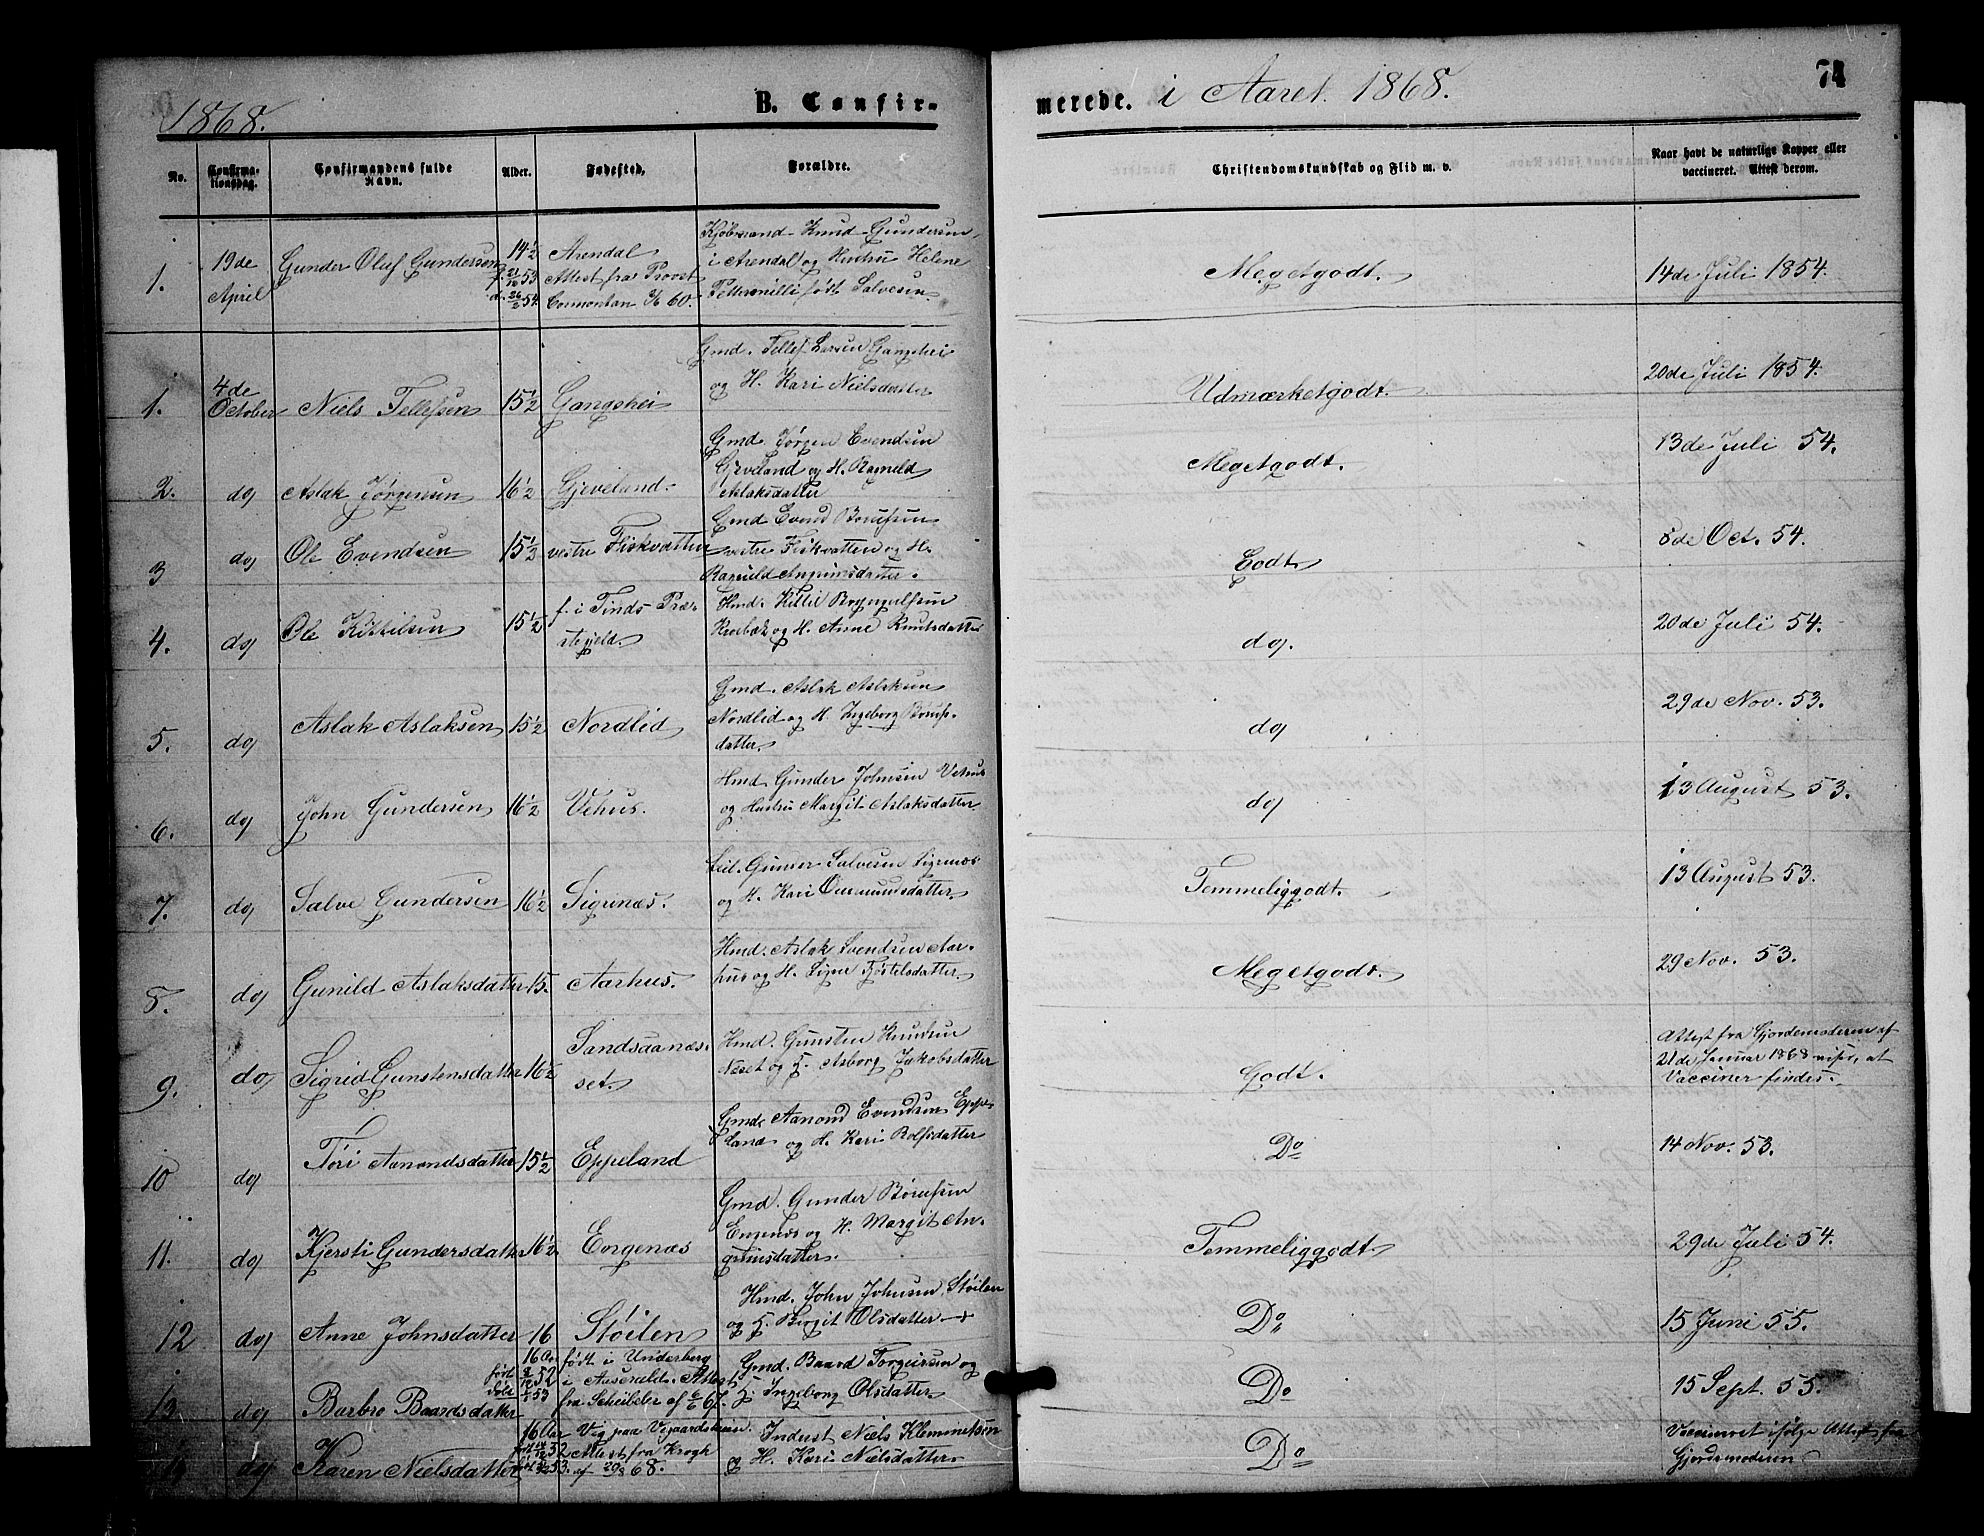 1868.
B. Confir-
merede. i Aaret 1868.
74
No.
Confirma-
tionsdag.
Confirmandens fulde
Navn.
Alder.
Fødested.
Forældre.
Christendomskundskab og Flid m. v.
Naar havt de naturlige Kopper eller
vaccineret. Attest derom.
1.
19de
April
Gunder Oluf Gundersen
14 1/2
Arendal
Attest fra Provst
60.
Kjøbmand Knud Gundersen
i Arendal og Hustru Helene
født Salvesen
Megetgodt.
14de Juli 1854.
1.
4de
October
Niels Tellefsen
15 1/2
Gangshei
Gmd. Tellef Larsen Gangshei
og H. Kari Nielsdatter
Udmærketgodt.
20de Juli 1854.
2.
do
Aslak Jørgensen
16 1/2
Gjeveland
Gmd. Jørgen Evendsen
Gjeveland og H. Ragnild
Aslaksdatter
Megetgodt.
13de Juli 54.
3
do
Ole Evendsen
15 1/2
vestre Fiskvatten
Gmd Evend
vestre Fiskvatten og H.
Ragnild
Godt
8de Oct. 54.
4.
do
Ole Kittilsen
15 1/2
f. i Tinds Præ-
stegjeld.
Hmd. Kittil
og H. Anne Knutsdatter
do.
20de Juli 54.
5.
do
Aslak Aslaksen
15 1/2
Nordlid
Gmd. Aslak Aslaksen
Nordlid og H. Ingeborg
datter
do
29de Nov. 53.
6.
do
John Gundersen
16 1/2
Vehus.
Hmd Gunder Johnsen Vehus
og Hustru Margit Aslaksdatter
do
13 August 53.
7.
do
Salve Gundersen
16 1/2
Sigrnæs.
Gunder Salvesen Sigrnæs
og H. Kari
Temmeliggodt.
13 August 53.
8.
do
Gunild Aslaksdatter
15.
Aarhus.
Hmd. Aslak Svendsen Aar-
hus og H. Signe
Megetgodt.
29 Nov. 53.
9.
do
Sigrid Gunstensdatter
16 1/2
Sandsaanæs-
set.
Hmd. Gunsten Knudsen
Næset og H. Asborg Jakobsdatter
Godt.
Attest fra Gjordemoderen af
Januar 1868 viser, at
Vacciner findes.
10
do
Tori Aanondsdatter
15 1/2
Eppeland
Gmd Aanond Evendsen Eppe-
land og H. Kari Rolfsdatter
Do
14 Nov. 53.
11.
do
Kjersti Gundersdatter
16 1/2
Engenæs
Gmd. Gunder
Engenæs og H. Margit An-
grimsdatter
Temmeliggodt
29de Juli 54.
12
do
Anne Johnsdatter
16
Støilen
Hmd. John Johnsen Støilen
og H. Birgit Olsdatter
Do
15 Juni 55.
13
do
Barbro Baardsdatter
16 Aar
født
52
53
født i Underberg
i Auserald. Attest
fra Scheibeler af 67.
Gmd. Baard Torgeirsen og
H. Ingeborg Olsdatter
Do
15 Sept. 55.
14
do
Karen Nielsdatter
16 Aar
52
53.
Vig paa
Attest fra Krogh
af 68.
Inderst Niels Klemmetsen
og H. Kari Nielsdatter
Do
Vaccineret ifølge Attest fra
Gjordemoderen